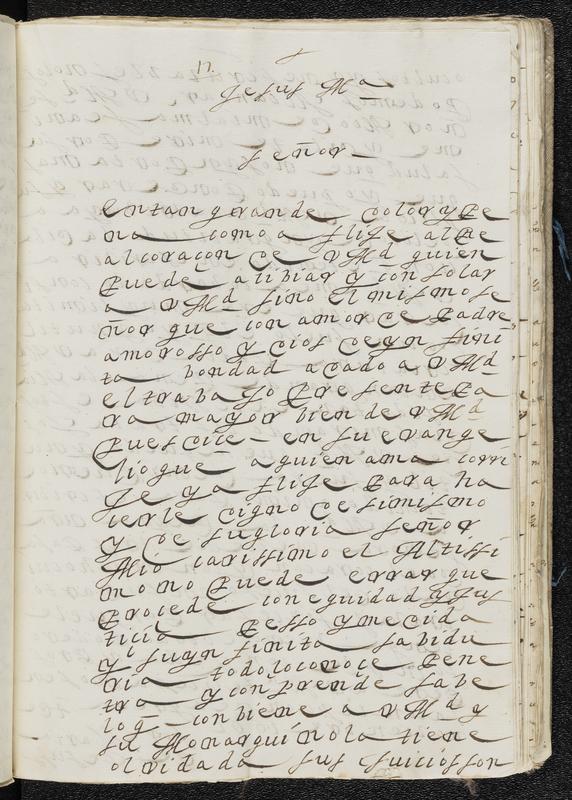 17.
Jesus Mª
señor
entan grande dolor y pe
na como a flije al Re
al coraçon de v Mᵈ quien
puede alibiar y consolar
a v Mᵈ sino el mismo se
ñor que con amor de padre
amorosso y dios de yn fini
ta bondad a dado a v Mᵈ
el trabajo presente pa
ra mayor bien de v Mᵈ
pues dice en su evange
lio que a quien ama corri
je y a flije para ha
cerle digno de simismo
y de su gloria señor
Mio carissimo el Altissi
mo no puede errar que
procede con equidad y Jus
ticia pesso y medida
y su yn finita sabidu
ria todo lo conoce pene
tra y conprende sabe
lo q̄ conbiene a v Mᵈ y
su Monarquia no la tiene
olvidada sus juicios son